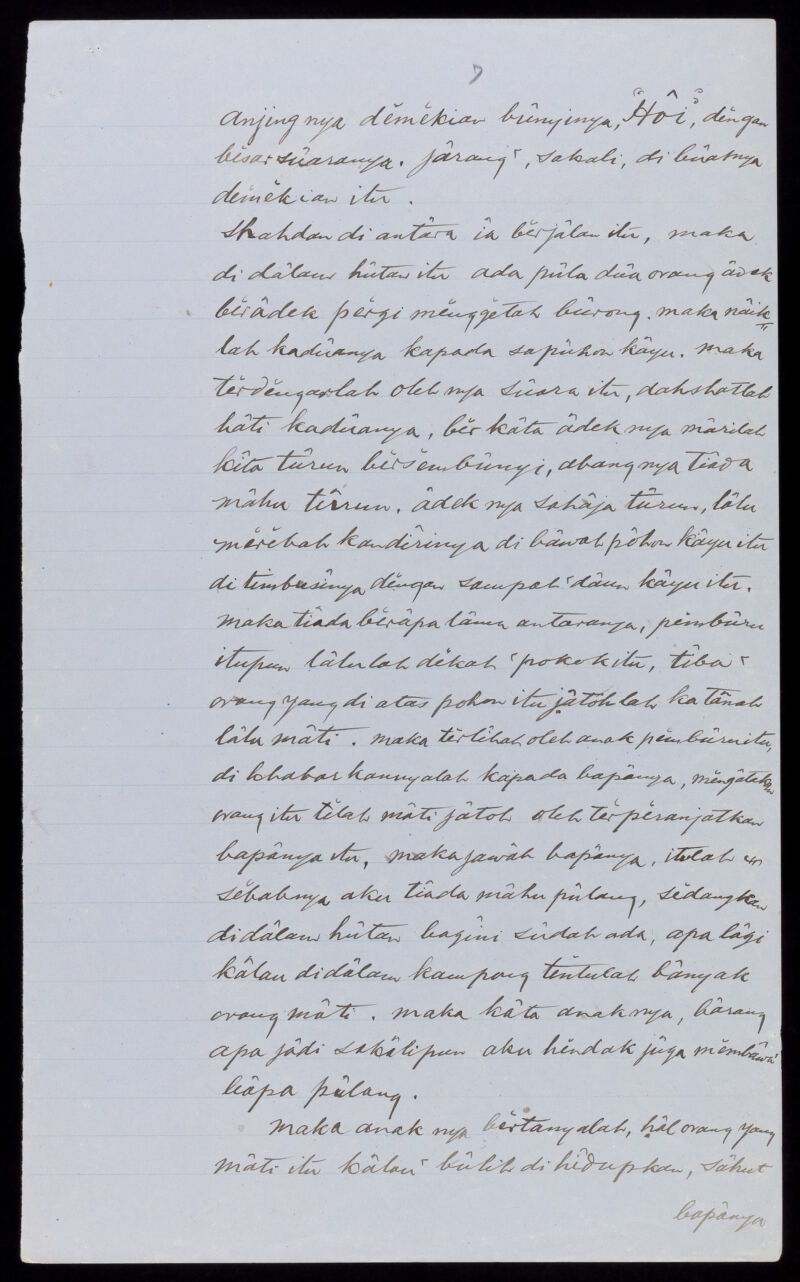 7
anjing nya dĕmĕkian bûnyinya, "Hôi", dĕngan
bĕsar sûaranya. jârang², sakali, di bûatnya
dĕmĕkian itu.
Shahdan di antâra îa bĕrjâlan itu, maka
di dâlam hûtan itu ada pûla dûa orang âdek
bĕrâdek pĕrgi mĕnggĕtah bûrong. maka nâik=
lah kadûanya kapada sapûhon kâyu. maka
tĕrdĕngarlah oleh nya sûara itu, dahshatlah
hâti kadûanya, bĕr kâta âdek nya mârilah
kîta tûrun bĕrsĕmbûnyi, abang nya tiâda
mâhu tûrun. âdek nya sahâja tûrun, lâlu
mĕrĕbah kandîrinya di bâwah pôhon kâyu itu
di timbusînya dĕngan sampah² dâun kâyu itu.
maka tiâda bĕrâpa lâma antaranya, pĕmbûru
itupun lâlulah dĕkat² pokok itu, tîba²
orang yang di atas pohon itu jâtôhlah ka tânah
lâlu mâti. maka tĕrlîhat oleh anak pĕmbûru itu,
di khabarkannyalah kapada bapânya, mĕngâtakan
orang itu tĕlah mâti jâtoh oleh tĕrpĕranjatkan
bapânya itu, maka jawâb bapânya, itulah
sĕbabnya aku tiâda mâhu pûlang, sĕdangkan
didâlam hûtan bagîni sûdah ada, apa lâgi
kâlau didâlam kampong tĕntulah bânyak
orang mâti. maka kâta anak nya, bârang
apa jâdi sakâlipun aku hĕndak jûga mĕmbâwa
bâpa pûlang.
maka anak nya bĕrtanyalah, hâl orang yang
mâti itu kâlau² bûlih di hîdupkan, sâhut
bapânya